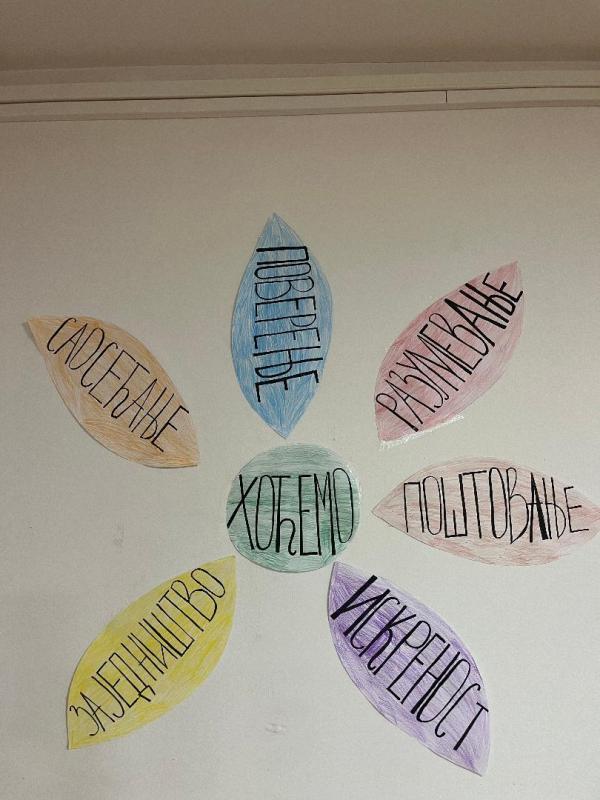 ПОВЕРЕЊЕ
РАЗУМЕВАЊЕ
САОСЕЋАЊЕ
ХОЋЕМО
ПОШТОВАЊЕ
ЗАЈЕДНИШТВО
ИСКРЕНОСТ